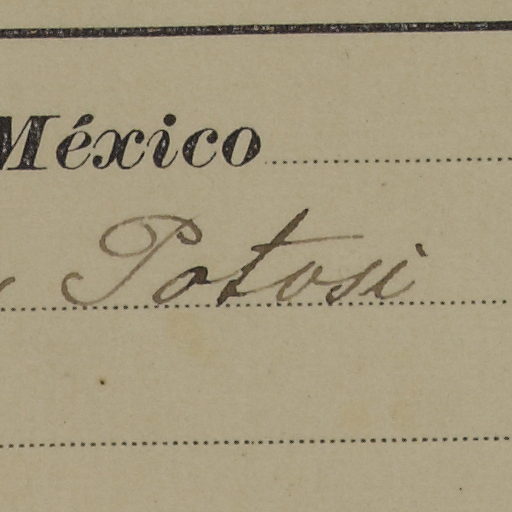 México
Potosi